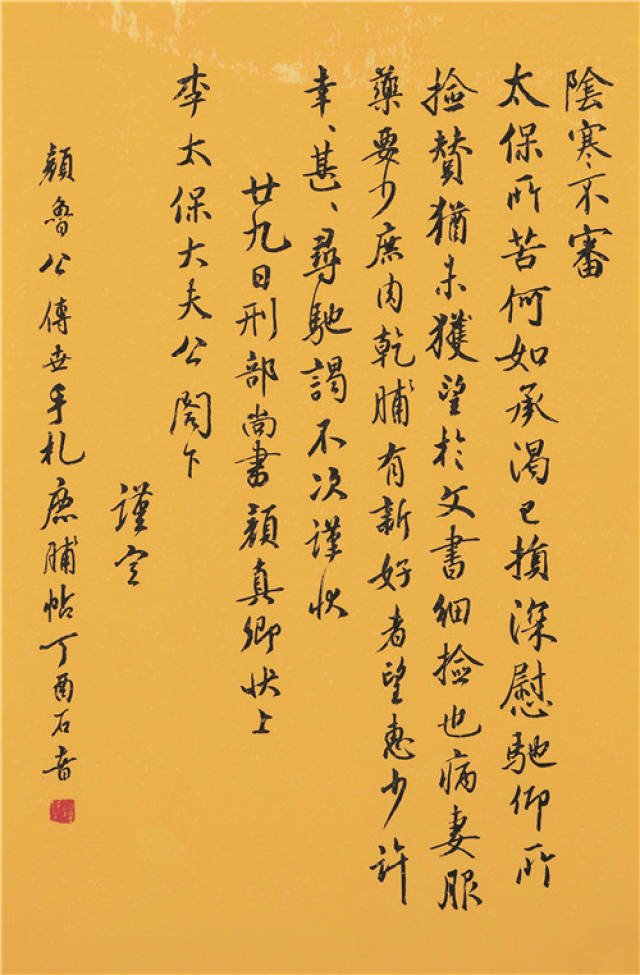 陰寒不審
太保所苦何如承渴已損深慰馳仰所
撿贊猶未獲望於文書細撿也病妻服
藥要少鹿肉乾脯有新好者望惠少許
幸、甚、尋馳謁不次謹狀
廿九日刑部尚書顔真卿狀上
李太保大夫公閣下
謹空
顔魯公傳世手札鹿脯帖丁酉石音